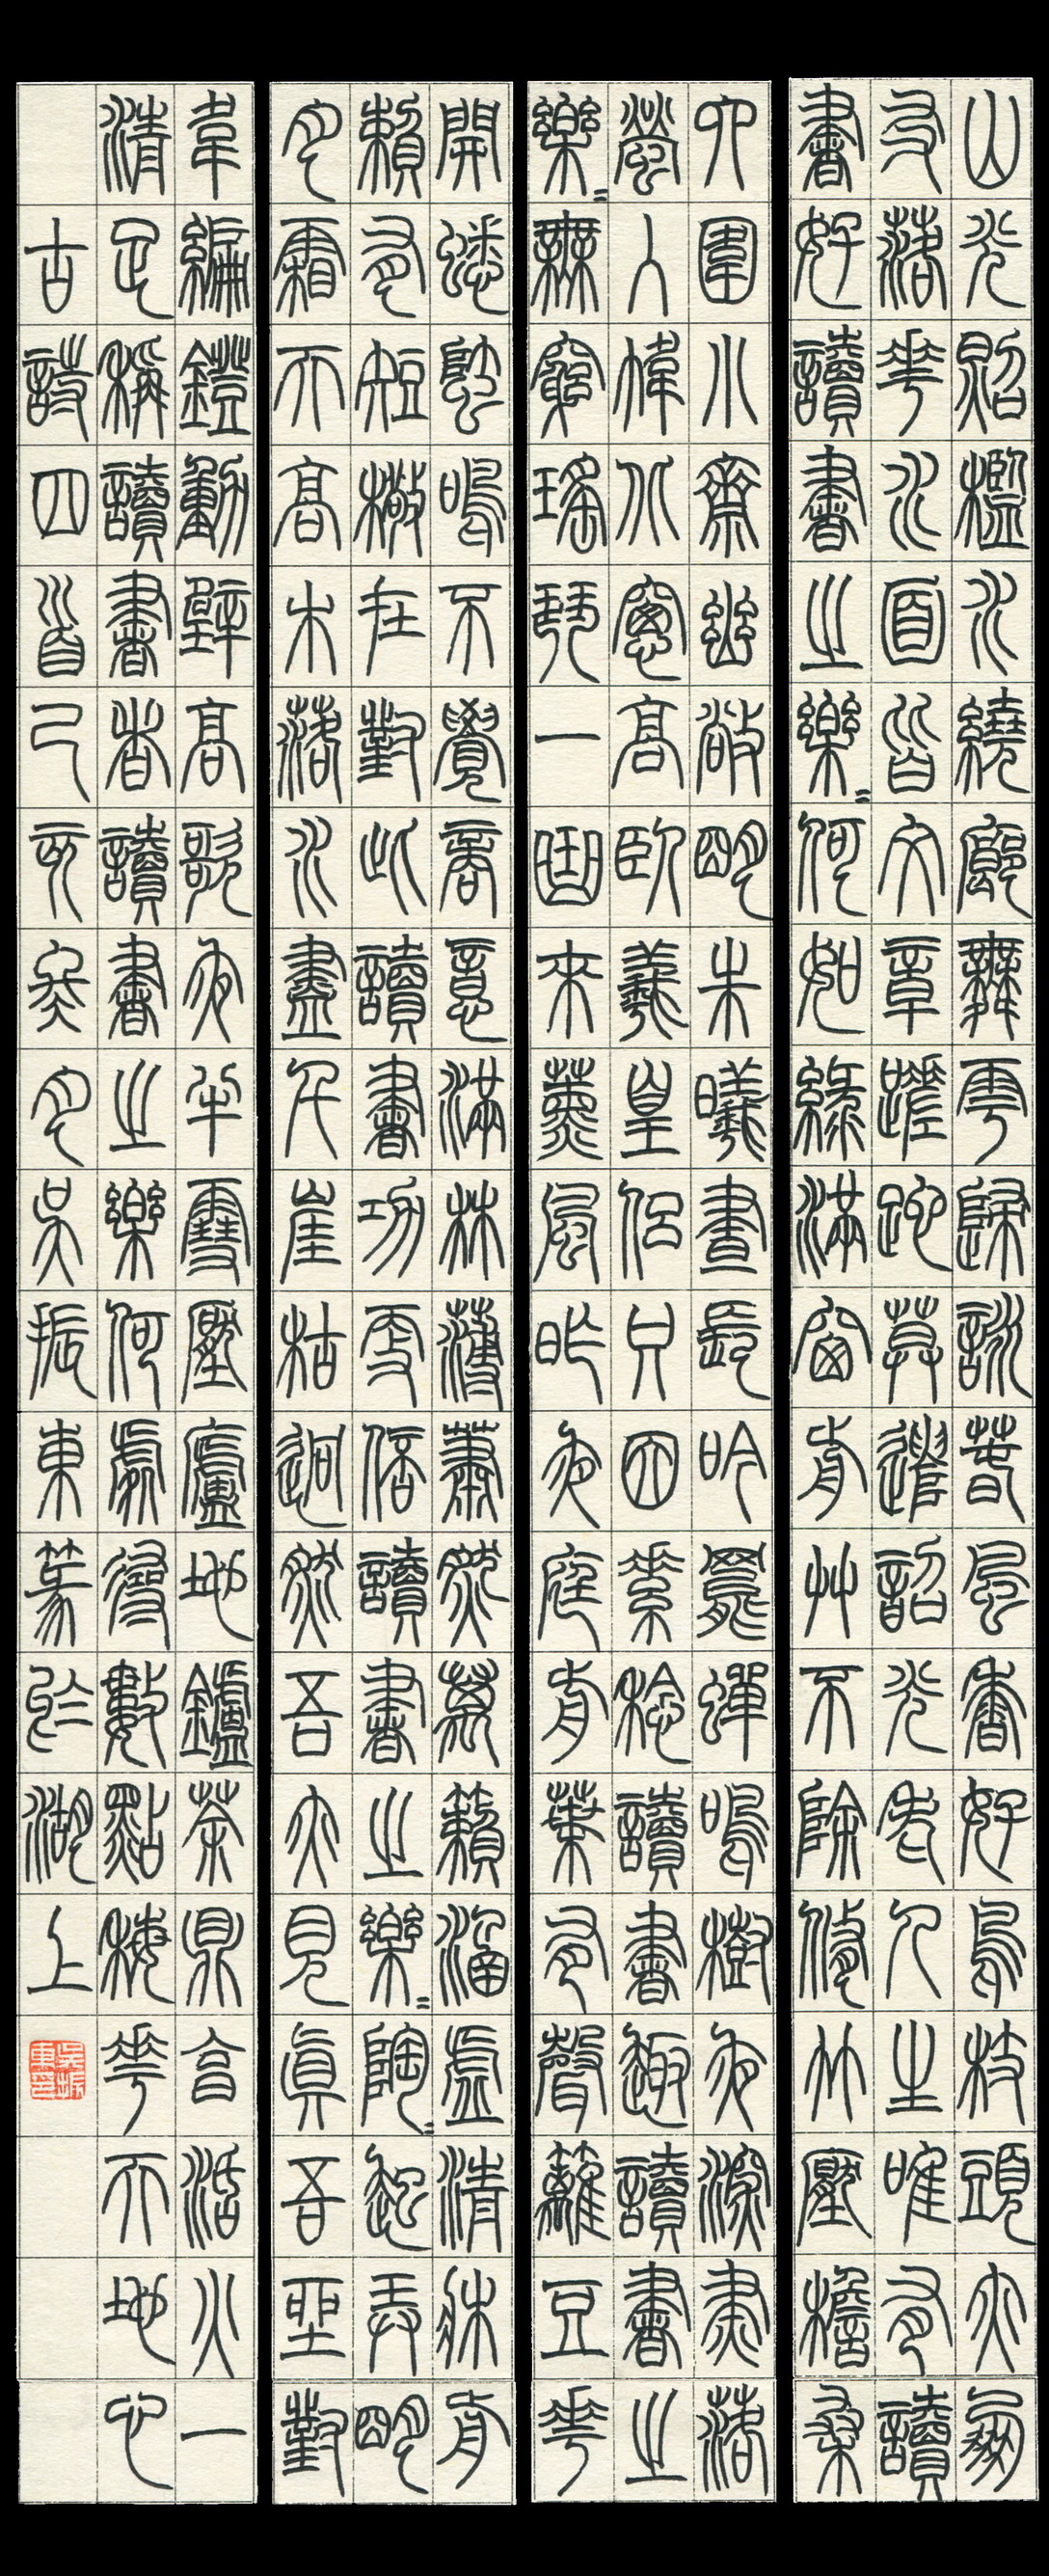 山光照檻水繞廊舞雩歸詠春風香好鳥枝頭亦朋
友落花水面皆文章蹉跎莫遣韶光老人生唯有讀
書好讀書之樂〻何如綠滿窗前艸不除修竹壓檐桑
四圍小齋幽敞明朱曦晝長吟罷蟬鳴樹夜深燼落
螢入幃北窗高臥羲皇侶只因素稔讀書趣讀書之
樂〻無窮瑤琴一曲來薰風昨夜庭前葉有聲籬豆花
開蟋蟀鳴不覺商意滿林薄蕭然萬籟涵虛清牀前
賴有短檠在對此讀書功更倍讀書之樂〻陶〻起弄明
月霜天高木落水盡千崖枯迥然吾亦見真吾坐對
韋編鐙動壁高歌夜半雪壓廬地鑪茶鼎烹活火一
清足稱讀書者讀書之樂何處尋數點梅花天地心
古詩四首己亥冬月吳振東篆於湖上
吳振東印